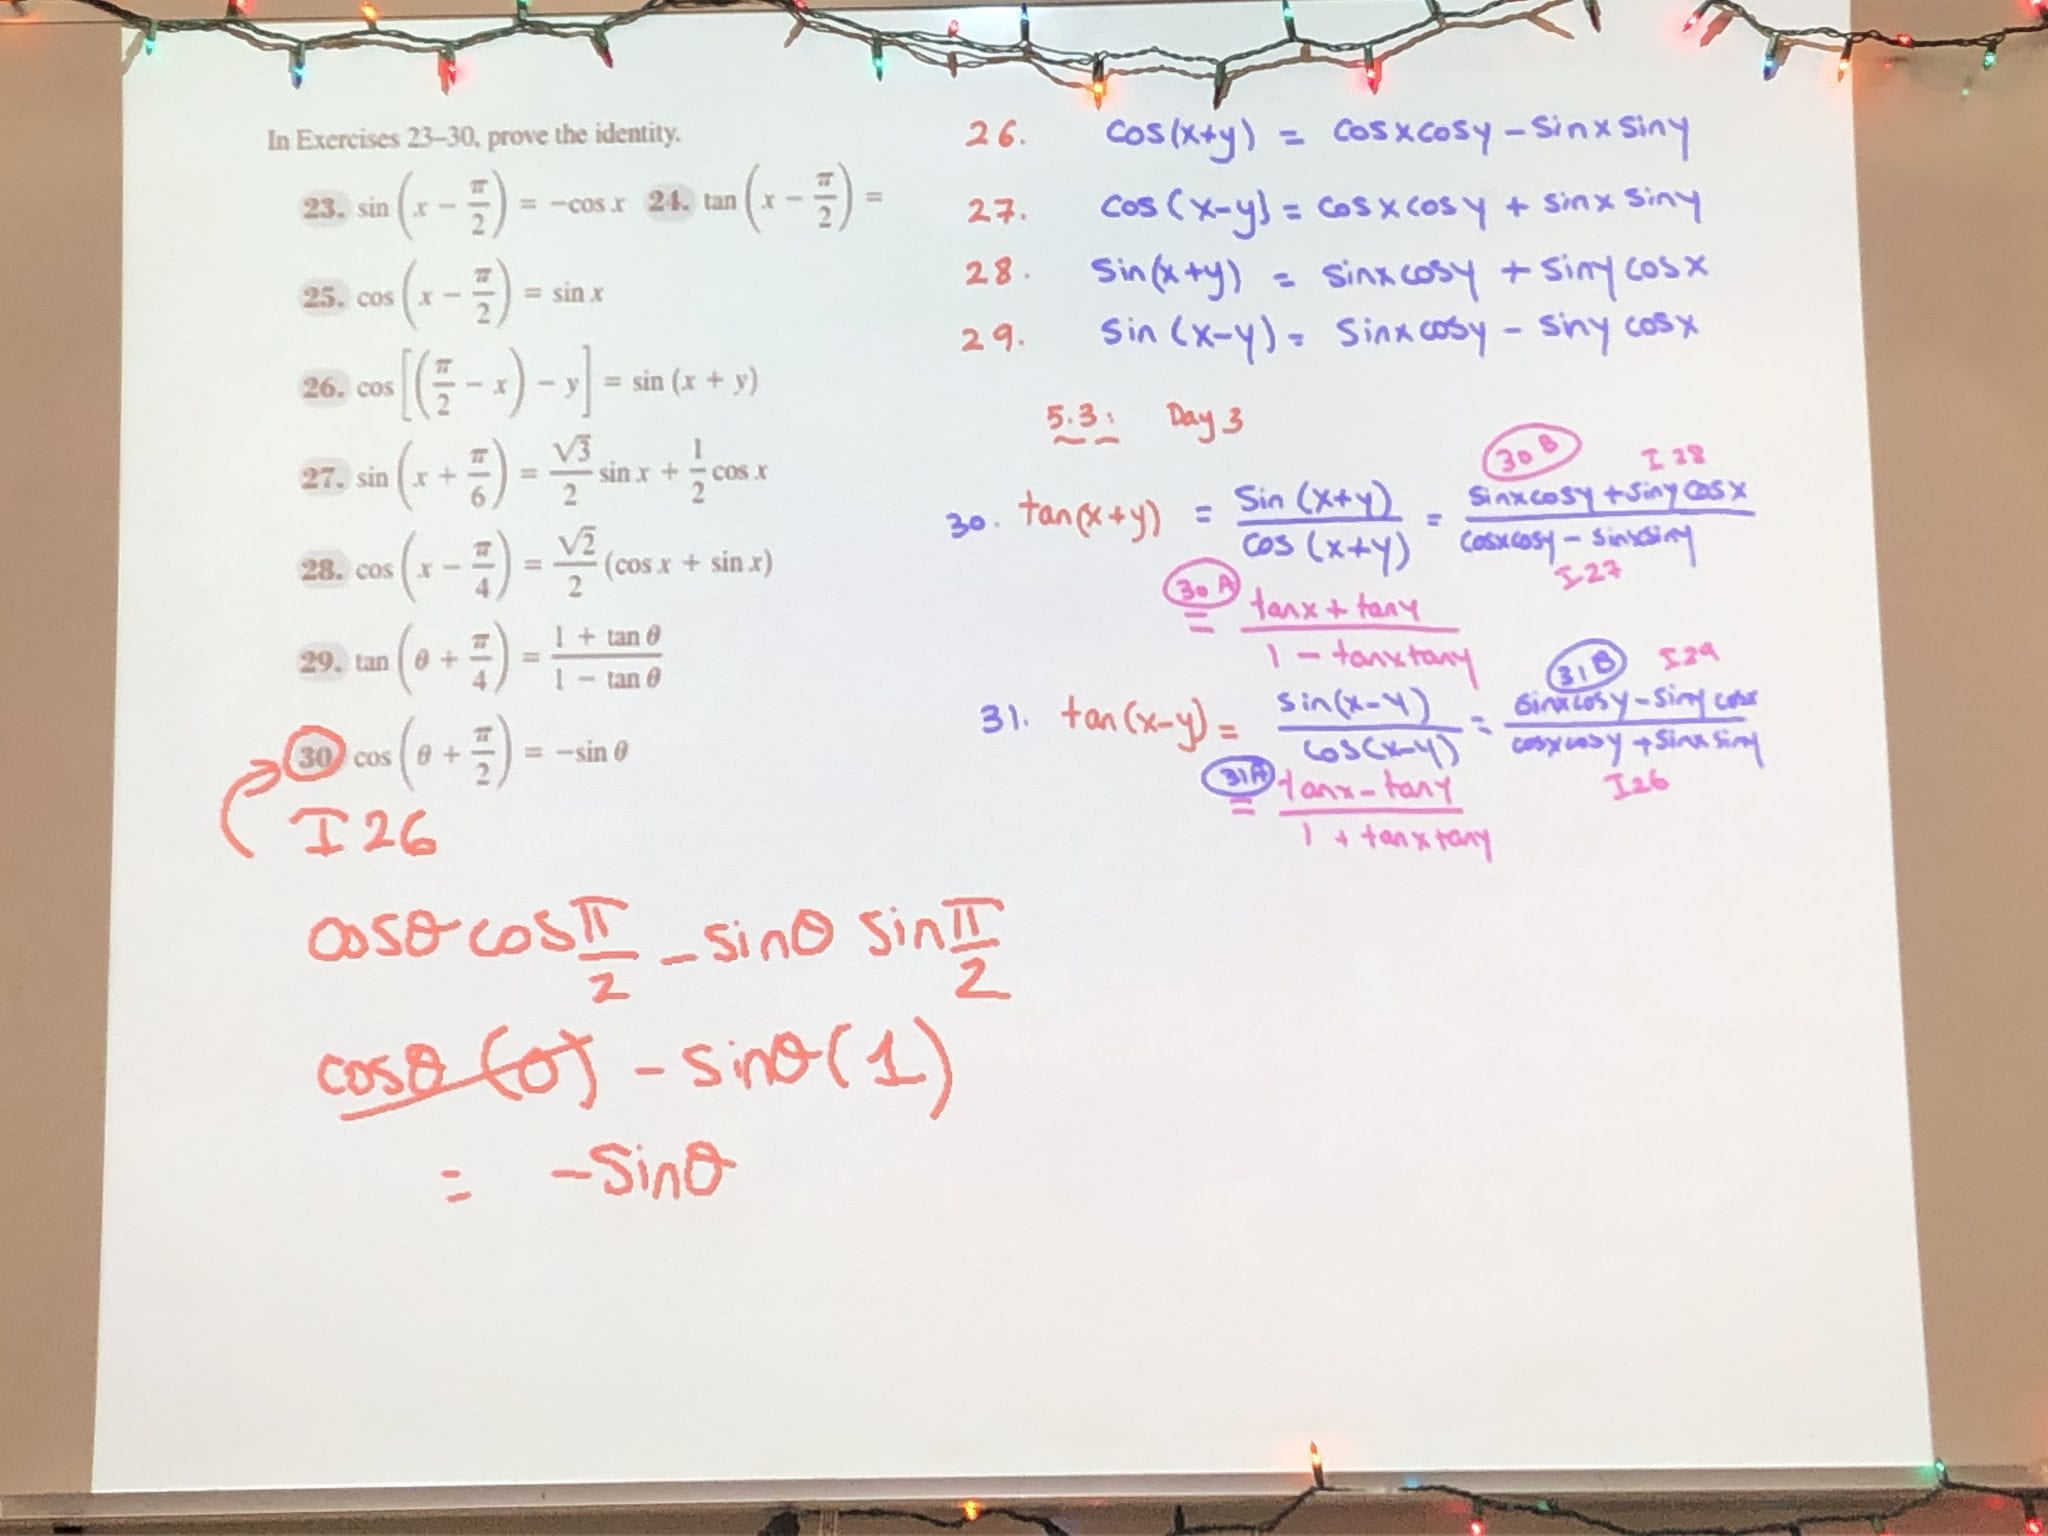 In Exercises 23–30, prove the identity.
23. sin (x − π/2) = −cos x 24. tan (x − π/2) =
25. cos (x − π/2) = sin x
26. cos [(π/2 − x) − y] = sin (x + y)
27. sin (x + π/6) = √3/2 sin x + 1/2 cos x
28. cos (x − π/4) = √2/2 (cos x + sin x)
29. tan (θ + π/4) = (1 + tan θ)/(1 − tan θ)
30 cos (θ + π/2) = −sin θ
I 26
cosθ cos π/2 − sinθ sin π/2
cosθ (0) − sinθ (1)
= −sinθ
26. cos(x+y) = cosxcosy − sinxsiny
27. cos(x−y) = cosxcosy + sinxsiny
28. sin(x+y) = sinxcosy + sinycosx
29. sin(x−y) = sinxcosy − sinycosx
5.3: Day 3
30 B I 28
30. tan(x+y) = sin(x+y)/cos(x+y) = (sinxcosy + sinycosx)/(cosxcosy − sinxsiny)
I 27
30 A = (tanx + tany)/(1 − tanxtany)
31 B I 29
31. tan(x−y) = sin(x−y)/cos(x−y) = (sinxcosy − sinycosx)/(cosxcosy + sinxsiny)
I 26
31A = (tanx − tany)/(1 + tanxtany)